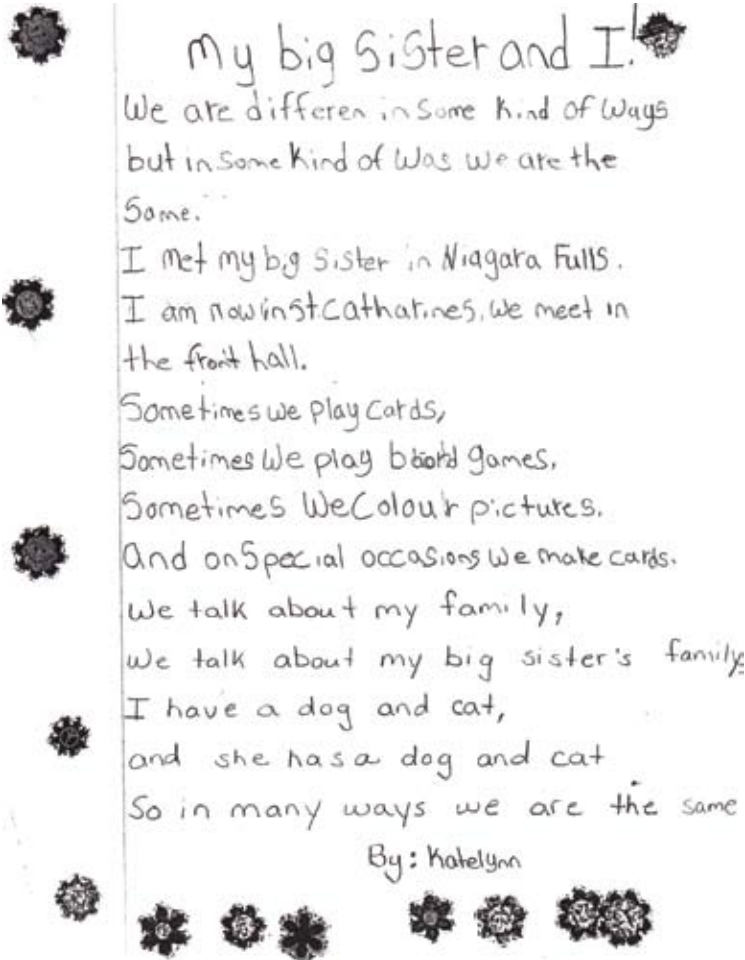 My big Sister and I!
We are differen in Some kind of Ways
but in Some kind of Was we are the
Same.
I met my big Sister in Niagara Fulls.
I am now in St. Catharines. We meet in
the front hall.
Sometimes we play Cards,
Sometimes We play board games,
Sometimes We Colour pictures.
And on Special occasions We make cards.
We talk about my family,
We talk about my big sister's family.
I have a dog and cat,
and she has a dog and cat
So in many ways we are the same
By: Katelynn